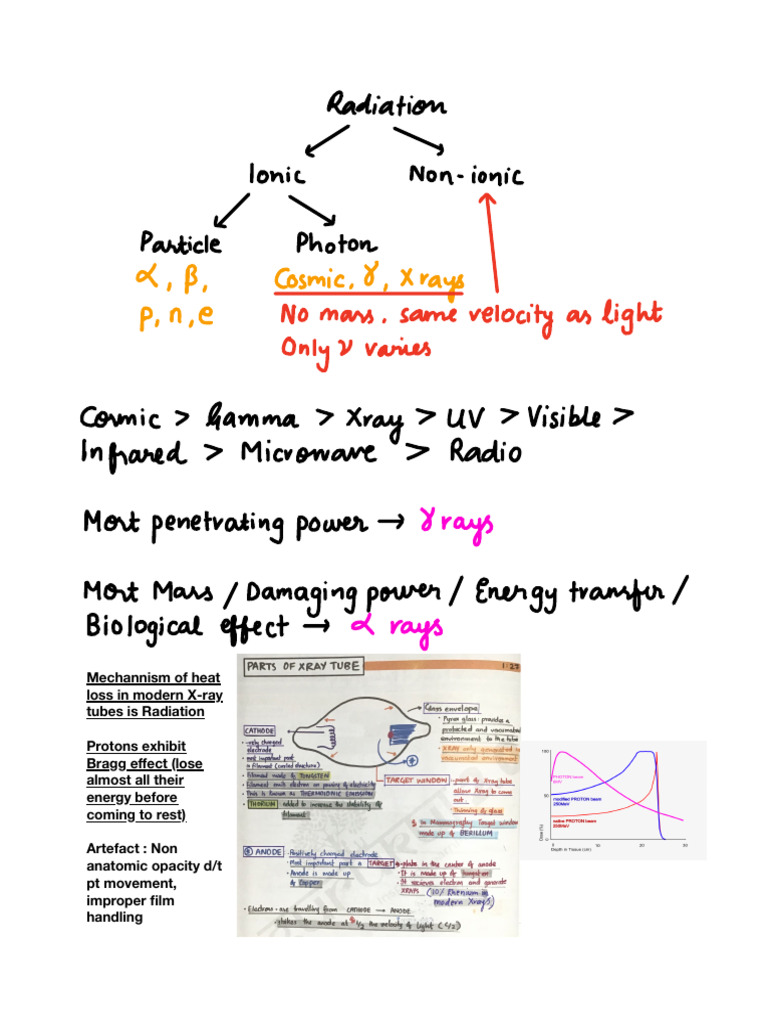 Radiation
Ionic
Non-ionic
Particle
Photon
α, β,
p, n, e
Cosmic, γ, X rays
No mass, same velocity as light
Only ν varies
Cosmic > Gamma > Xray > UV > Visible >
Infrared > Microwave > Radio
Most penetrating power → γ rays
Most Mass / Damaging power / Energy transfer /
Biological effect → α rays
Mechannism of heat
loss in modern X-ray
tubes is Radiation
Protons exhibit
Bragg effect (lose
almost all their
energy before
coming to rest)
Artefact : Non
anatomic opacity d/t
pt movement,
improper film
handling
PARTS OF XRAY TUBE
1:27
Glass envelope
Pyrex glass: provides a
protected and vacuumated
environment to the tube
XRAY only generated in
vacuumated environment
CATHODE
-vely charged
electrode
most important part
is Filament (coiled structure)
Filament made of TUNGSTEN
Filament emits electron on passing of electricity
This is known as THERMIONIC EMISSION
THORIUM added to increase the stability of
filament
TARGET WINDOW
part of Xray tube
allow Xray to come
out
Thinning of glass
In Mammography Target window
made up of BERILLIUM
ANODE
Positively charged electrode
Most important part is TARGET
plate in the center of anode
Anode is made up
of Copper
It is made up of tungsten
It recieves electron and generate
XRAYS (10% Rhenium in
modern Xrays)
Electrons are travelling from CATHODE → ANODE
strikes the anode at 1/2 the velocity of light (c/2)
PHOTON beam
modified PROTON beam
250MeV
native PROTON beam
250MeV
Dose (%)
100
50
0
0 10 20 30
Depth in Tissue (cm)